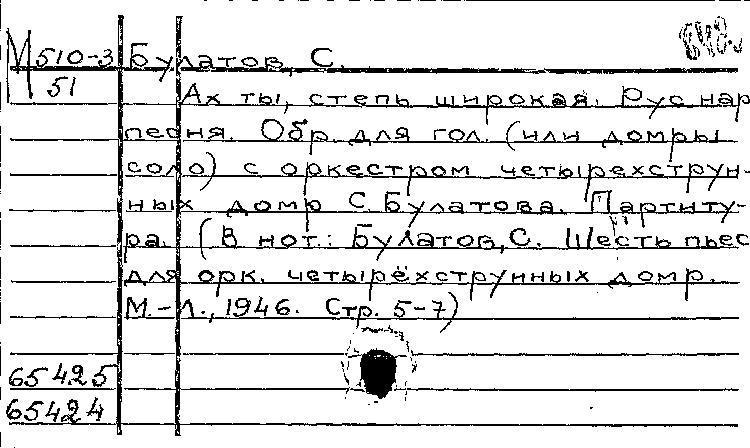 М 510-3 Булатов, С.
51
Ах ты, степь широкая. Рус нар
песня. Обр. для гол. (или домры
соло) с оркестром четырехструн-
ных домр С. Булатова. Партиту-
ра. (В нот.: Булатов, С. Шесть пьес
для орк. четырёхструнных домр.
М.-Л., 1946. Стр. 5-7)
65425
65424